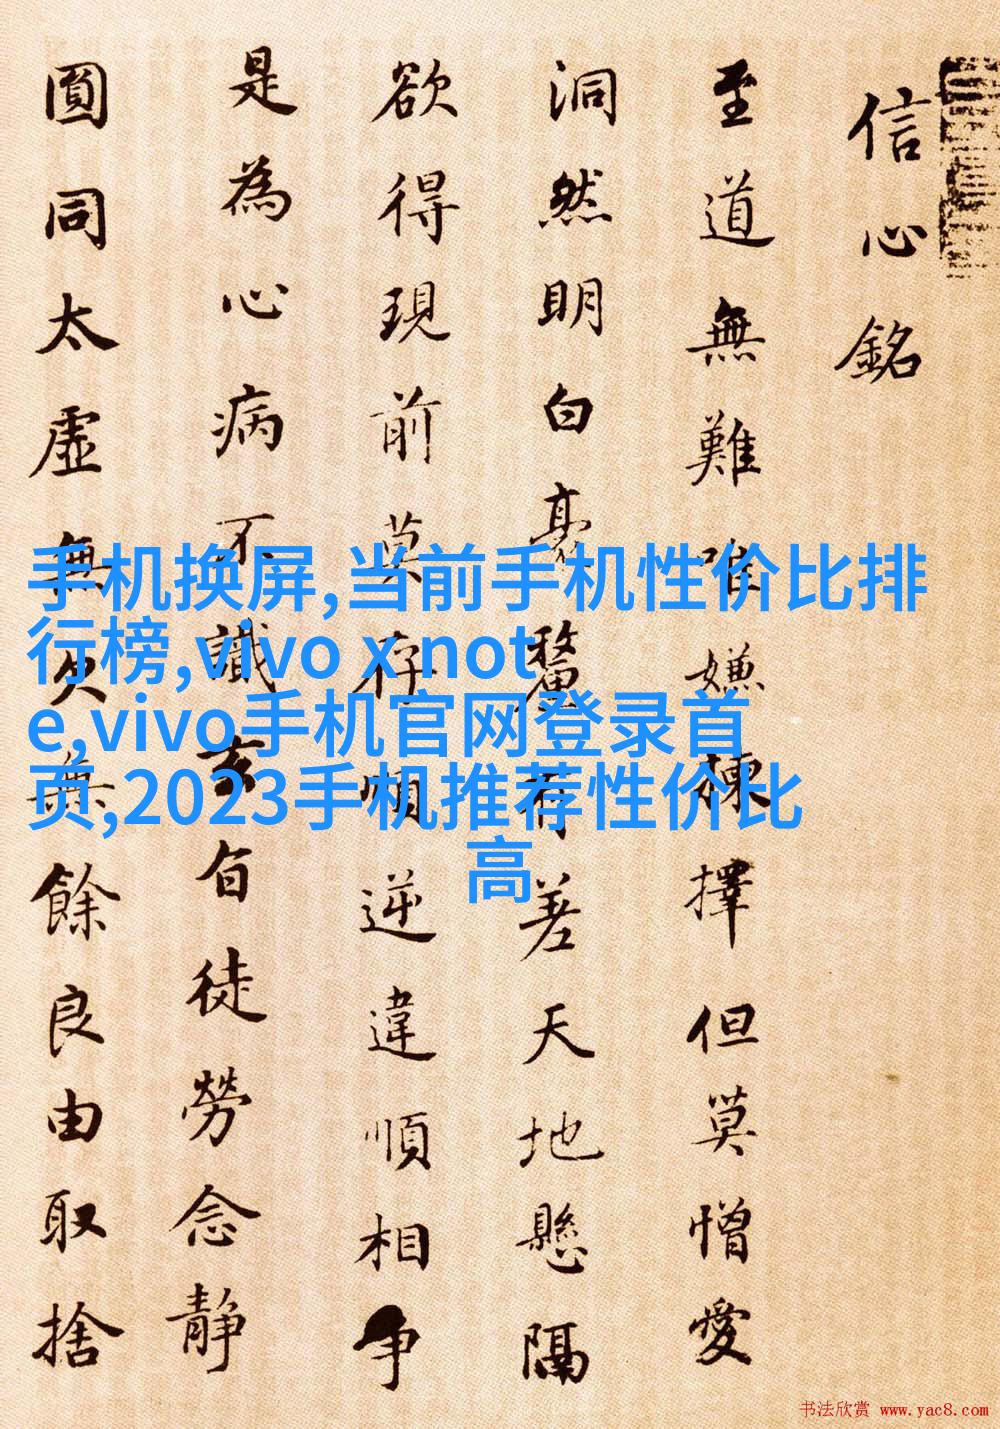 信心銘
至道無難唯嫌揀擇但莫憎愛
洞然明白毫釐有差天地懸隔
欲得現前莫存順逆違順相争
是為心病不識玄旨徒勞念静
圓同太虛無欠無餘良由取捨
手机换屏,当前手机性价比排
行榜,vivo x not
e,vivo手机官网登录首
页,2023手机推荐性价比
高
书法欣赏 www.yac8.com